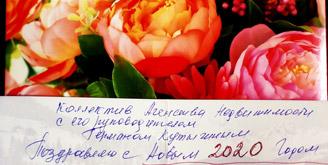 Коллектив Агенства Недвижимости
с его руководителем
Германом
Поздравляю с Новым 2020 Годом